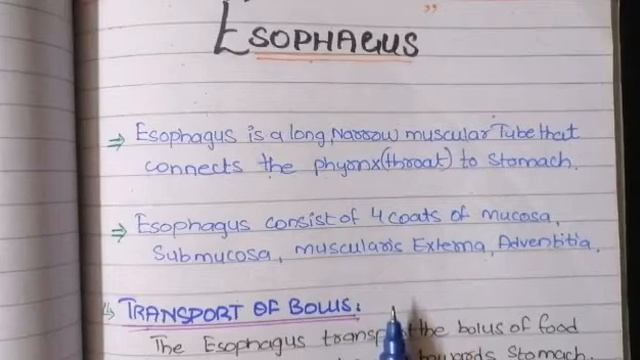 ”
ESOPHAGUS
⇒ Esophagus is a long, Narrow muscular Tube that
connects the phyonx (throat) to Stomach.
⇒ Esophagus consist of 4 coats of mucosa,
Submucosa, muscularis Externa, Adventitia.
TRANSPORT OF BOLUS:
The Esophagus the bolus of food
towards Stomach